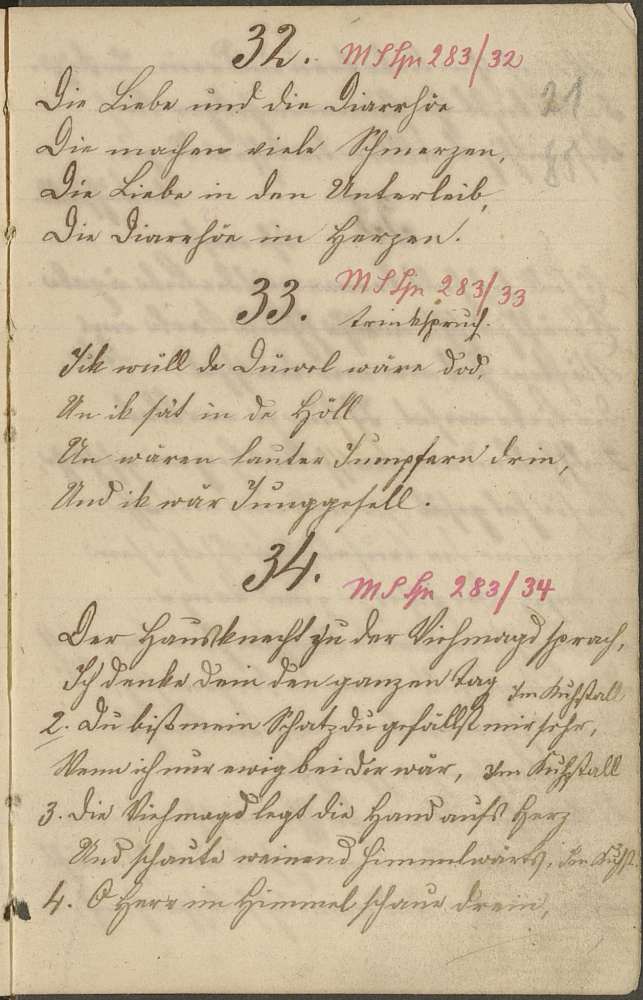 32. MS Hn 283/32
21
Die Liebe und die Diarrhöe
Die machen viele Schmerzen,
Die Liebe in den Unterleib,
Die Diarrhöe im Herzen.
33. MS Hn 283/33
Trinkspruch.
Ik wull de Düwel wäre dod,
Un ik sät in de Höll
Un wären lauter Jumpfern drin,
Und ik wär Junggesell.
34.
MS Hn 283/34
Der Hausknecht zu der Viehmagd sprach,
Ich denke Dein den ganzen Tag Im Kuhstall
2. Du bist mein Schatz du gefällst mir sehr,
Wenn ich nur ewig bei Dir wär, Im Kuhstall
3. Die Viehmagd legt die Hand aufs Herz
Und schaute weinend himmelwärts, Im Kuhst.
4. O Herr im Himmel schaue drein,